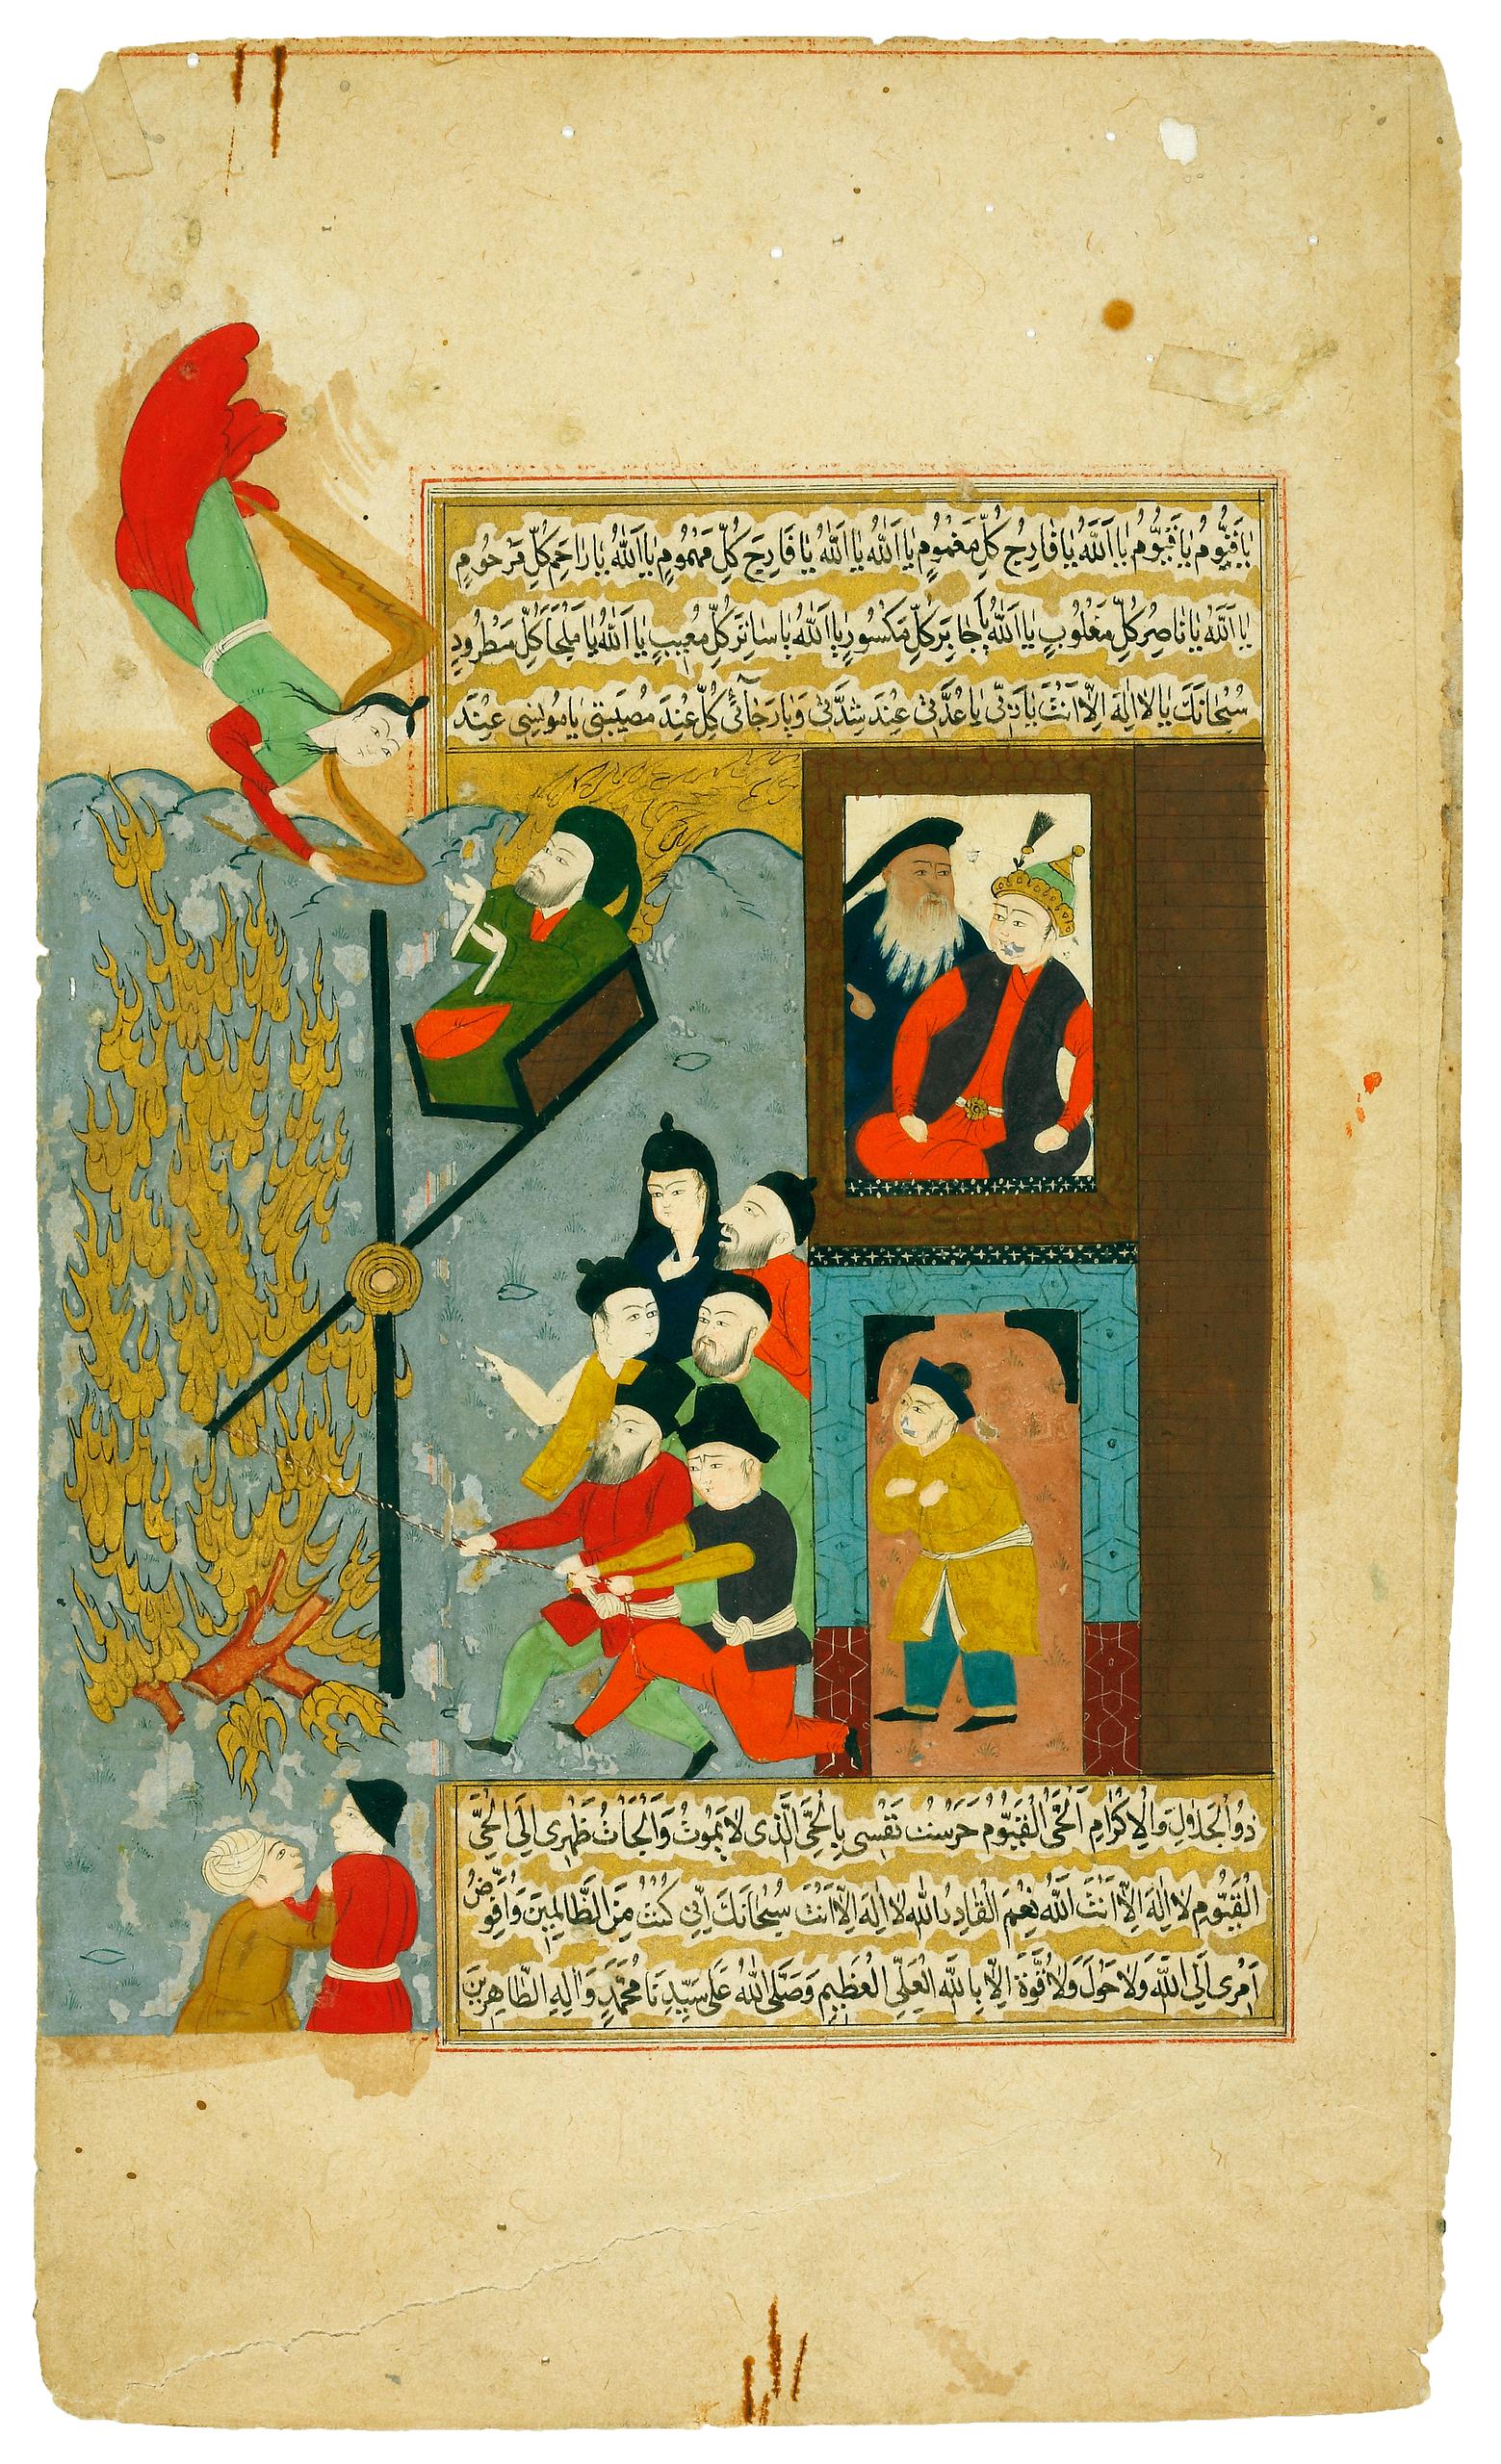 يَا قَيُّومُ يَا قَيُّومُ يَا اَللّٰهُ يَا فَارِجُ كُلِّ مَغْمُومٍ يَا اَللّٰهُ يَا اَللّٰهُ يَا فَارِجَ كُلِّ مَهْمُومٍ يَا اَللّٰهُ يَا رَاحِمَ كُلِّ مَرْحُومٍ
يَا اَللّٰهُ يَا نَاصِرُ كُلِّ مَغْلُوبٍ يَا اَللّٰهُ يَا جَابِرَ كُلِّ مَكْسُورٍ يَا اَللّٰهُ يَا سَاتِرَ كُلِّ مَعِيبٍ يَا اَللّٰهُ يَا مَلْجَاَ كُلِّ مَطْرُودٍ
سُبْحَانَكَ يَا لَا اِلٰهَ اِلَّا اَنْتَ يَا رَبِّي يَا عُدَّتِي عِنْدَ شِدَّتِي وَيَا رَجَائِي كُلِّ عِنْدَ مُصِيبَتِي يَا مُونِسِي عِنْدَ
ذُو الْجَلَالِ وَالْاِكْرَامِ اَلْحَيُّ الْقَيُّومُ حَرَسْتُ نَفْسِي بِالْحَيِّ الَّذِي لَا يَمُوتُ وَاَلْجَاْتُ ظَهْرِي اِلَى الْحَيِّ
الْقَيُّومِ لَا اِلٰهَ اِلَّا اَنْتَ اَللّٰهُ نِعْمَ الْقَادِرُ اللّٰهُ لَا اِلٰهَ اِلَّا اَنْتَ سُبْحَانَكَ اِنِّي كُنْتُ مِنَ الظَّالِمِينَ وَاُفَوِّضُ
اَمْرِي اِلَى اللّٰهِ وَلَا حَوْلَ وَلَا قُوَّةَ اِلَّا بِاللّٰهِ الْعَلِيِّ الْعَظِيمِ وَصَلَّى اللّٰهُ عَلَى سَيِّدِنَا مُحَمَّدٍ وَاٰلِهِ الطَّاهِرِينَ